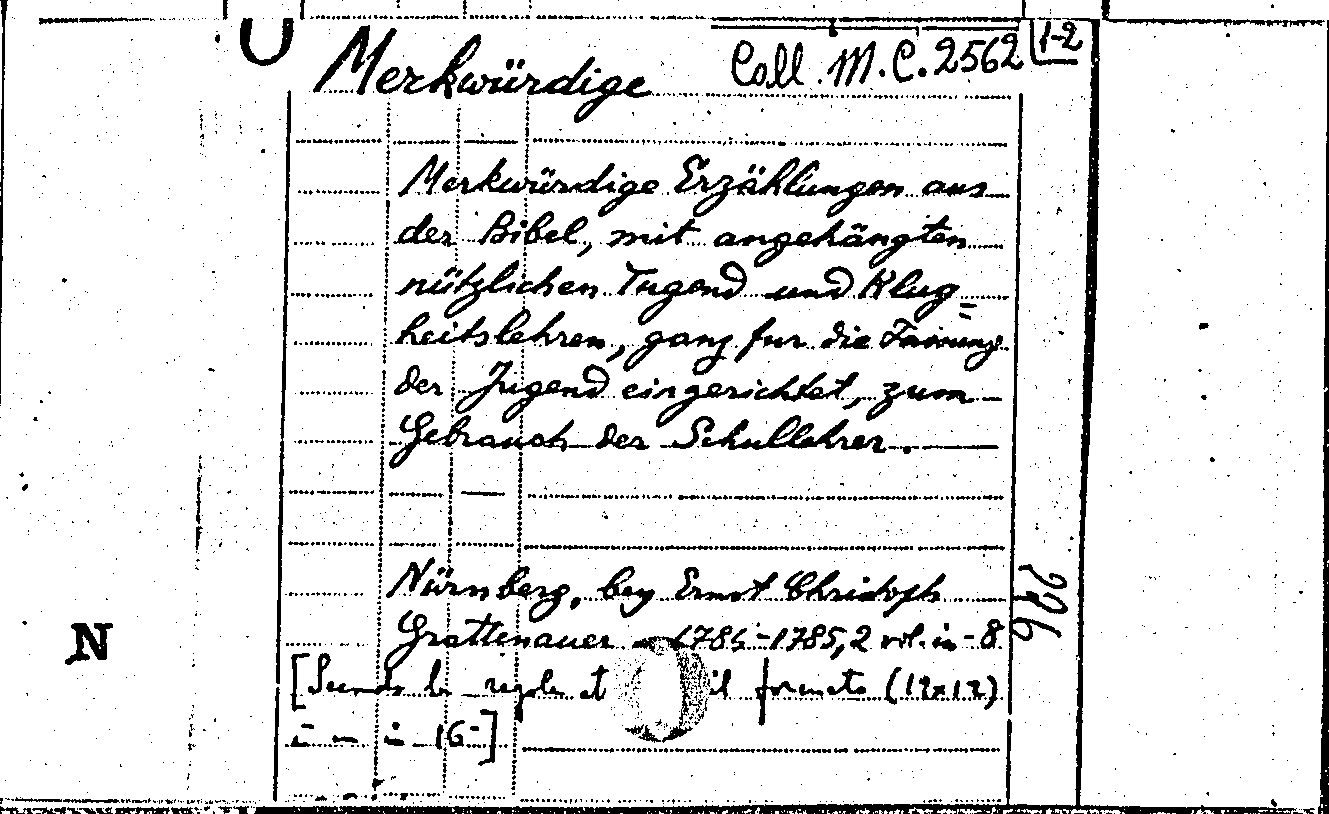 Merkwürdige Coll. M. C. 2562 1-2
Merkwürdige Erzählungen aus
der Bibel, mit angehängten
nützlichen Tugend und Klug=
heitslehren, ganz fur die
der Jugend eingerichtet, zum
Gebrauch der Schullehrer.
Nürnberg, bey Ernst Christoph
Grattenauer 1784-1785, 2 vol. in-8
[Secondo le il formato (12x12)
è un in 16°]
226
N